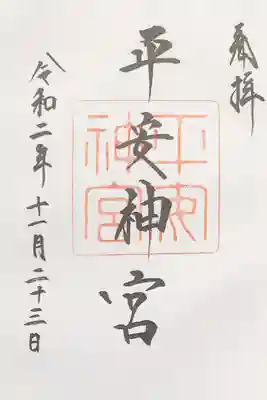 奉拝
平安神宮
平安神宮
令和二年十一月二十三日